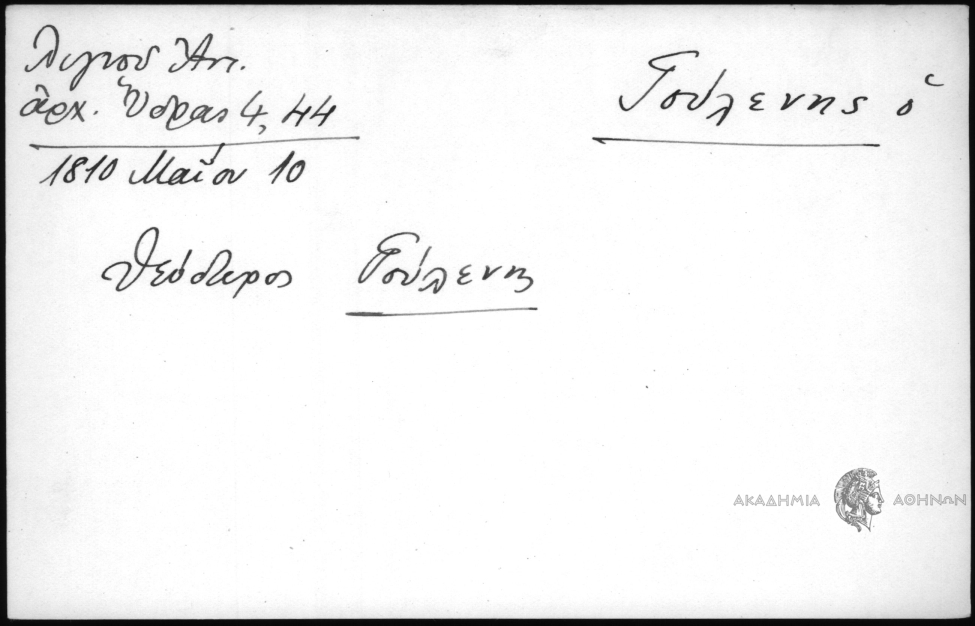 Λιγνού Ἀντ.
ἀρχ. Ὕδρας 4, 44
1810 Μαΐου 10
Τσούλενης ὁ
Θεόδωρος Τσούλενης
ΑΚΑΔΗΜΙΑ ΑΘΗΝΩΝ